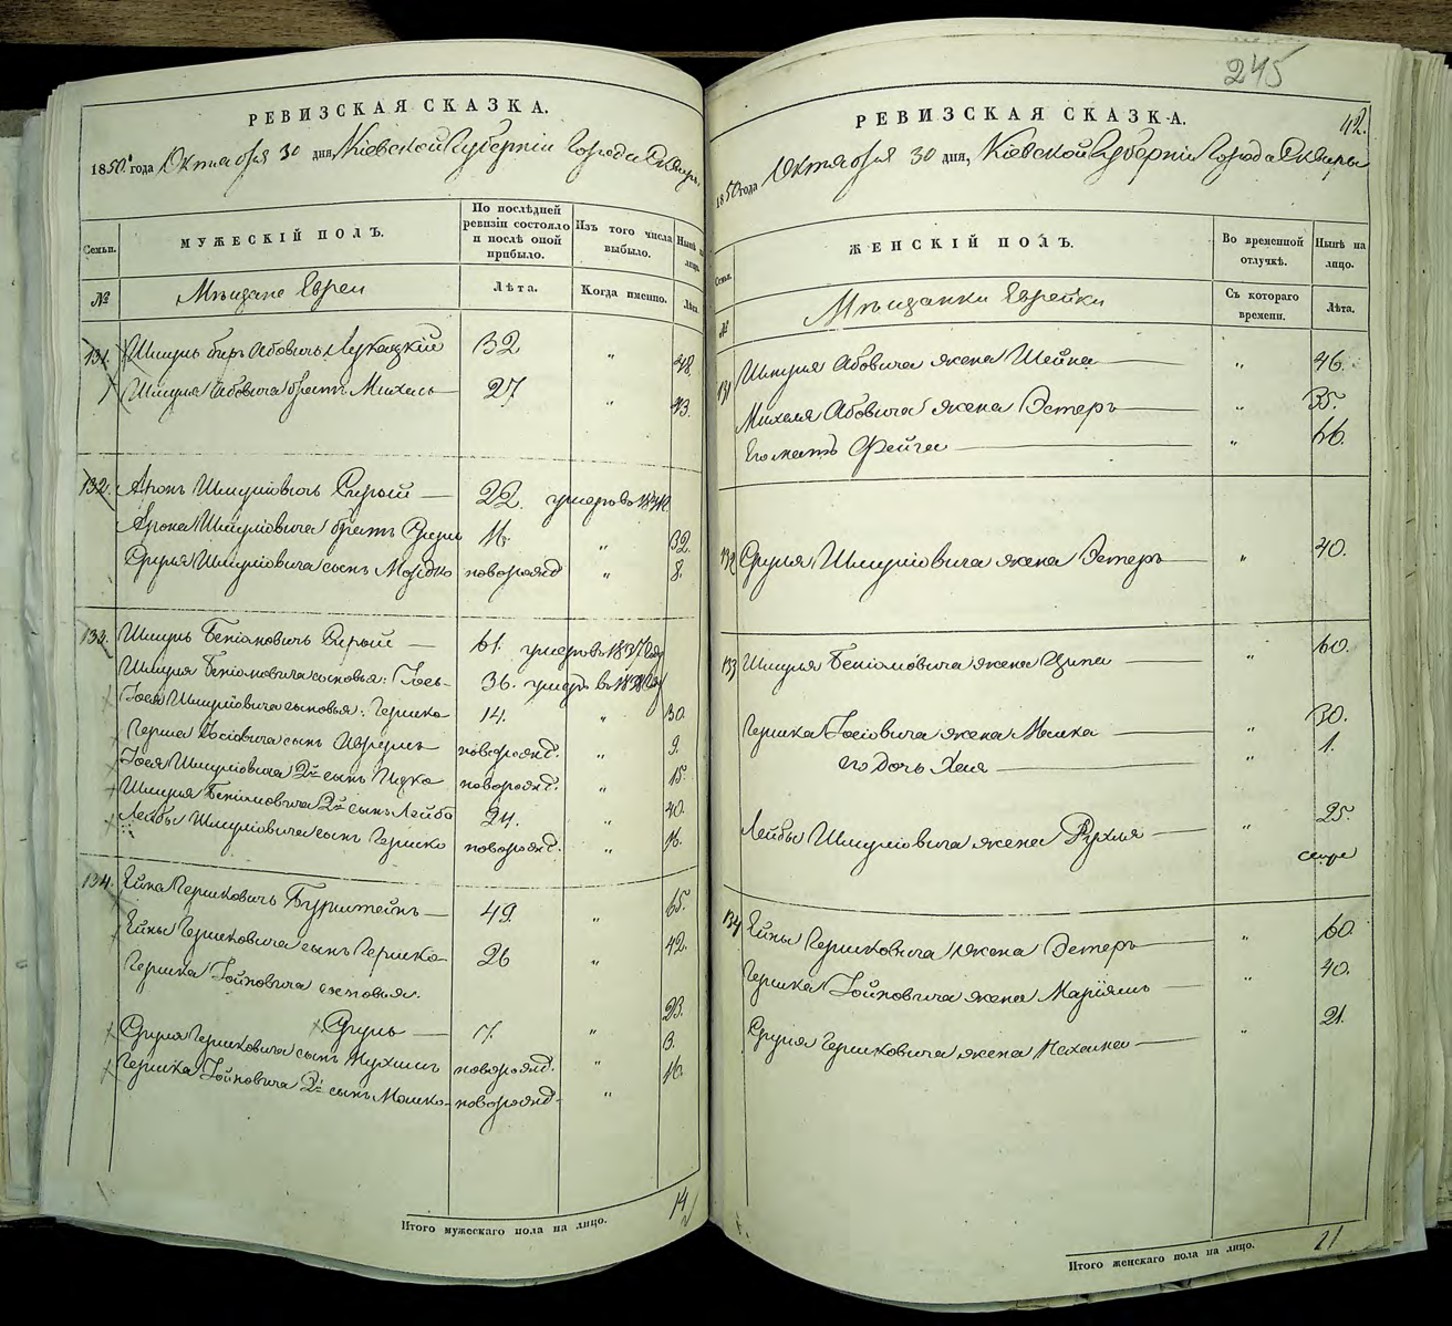 РЕВИЗСКАЯ СКАЗКА.
1850 года Октября 30 дня, Кіевской Губерніи Города Сквиры
Семьи.
МУЖЕСКІЙ ПОЛЪ.
По послѣдней ревизіи состояло и послѣ оной прибыло.
Изъ того числа выбыло.
Нынѣ на лицо.
№
Мѣщане Евреи
Лѣта.
Когда именно.
Лѣта.
131. Шмуль Абовичъ 32 " 48.
Шмуля Абовича братъ Михель 27 " 43.
132. Аронъ Шмуліовичъ Сирый 22. умеръ въ
Арона Шмуліовича братъ Сруль 16. " 32.
Сруля Шмуліовича сынъ Мордко новорожд " 8.
133. Шмуль Беніаовичъ Сирый 61. умеръ въ 1837 году
Шмуля Беніамовича сыновья: Іось 36. умеръ въ 1838 году
Іося Шмуліовича сыновья: Гершко 14. " 30.
Герша Іосіовича сынъ Аврумъ новорожд. " 9.
Іося Шмуліовича 2й сынъ Ицко новорожд. " 15.
Шмуля Беніамовича 2й сынъ Лейба 24. " 40.
Лейбы Шмуліовича сынъ Гершко новорожд. " 16.
134. Гершковичъ Бурштейнъ 49. " 65.
Гершковича сынъ Гершко 26 " 42.
Гершка Іойновича сыновья:
Сруль 7. " 23.
Сруля Гершковича сынъ Нухимъ новорожд. " 3.
Гершка Іойновича 2й сынъ Мошко новорожд. " 16.
Итого мужескаго пола на лицо.
14
245
РЕВИЗСКАЯ СКАЗКА.
42.
1850 года Октября 30 дня, Кіевской Губерніи Города Сквиры
Семьи.
ЖЕНСКІЙ ПОЛЪ.
Во временной отлучкѣ.
Нынѣ на лицо.
№
Мѣщанки Еврейки
Съ котораго времени.
Лѣта.
131 Шмуля Абовича жена Шейна " 46.
Михеля Абовича жена Эстеръ " 35.
Его мать Фейга " 66.
132 Сруля Шмуліовича жена Эстеръ " 40.
133 Шмуля Беніамовича жена Ципа " 60.
Гершка Іосіовича жена Малка " 30.
его дочь Хая " 1.
Лейбы Шмуліовича жена Рухля " 25.
134 Гершковича жена Эстеръ " 60.
Гершка Іойновича жена Маріямъ " 40.
Сруля Гершковича жена Нехама " 21.
Итого женскаго пола на лицо.
11